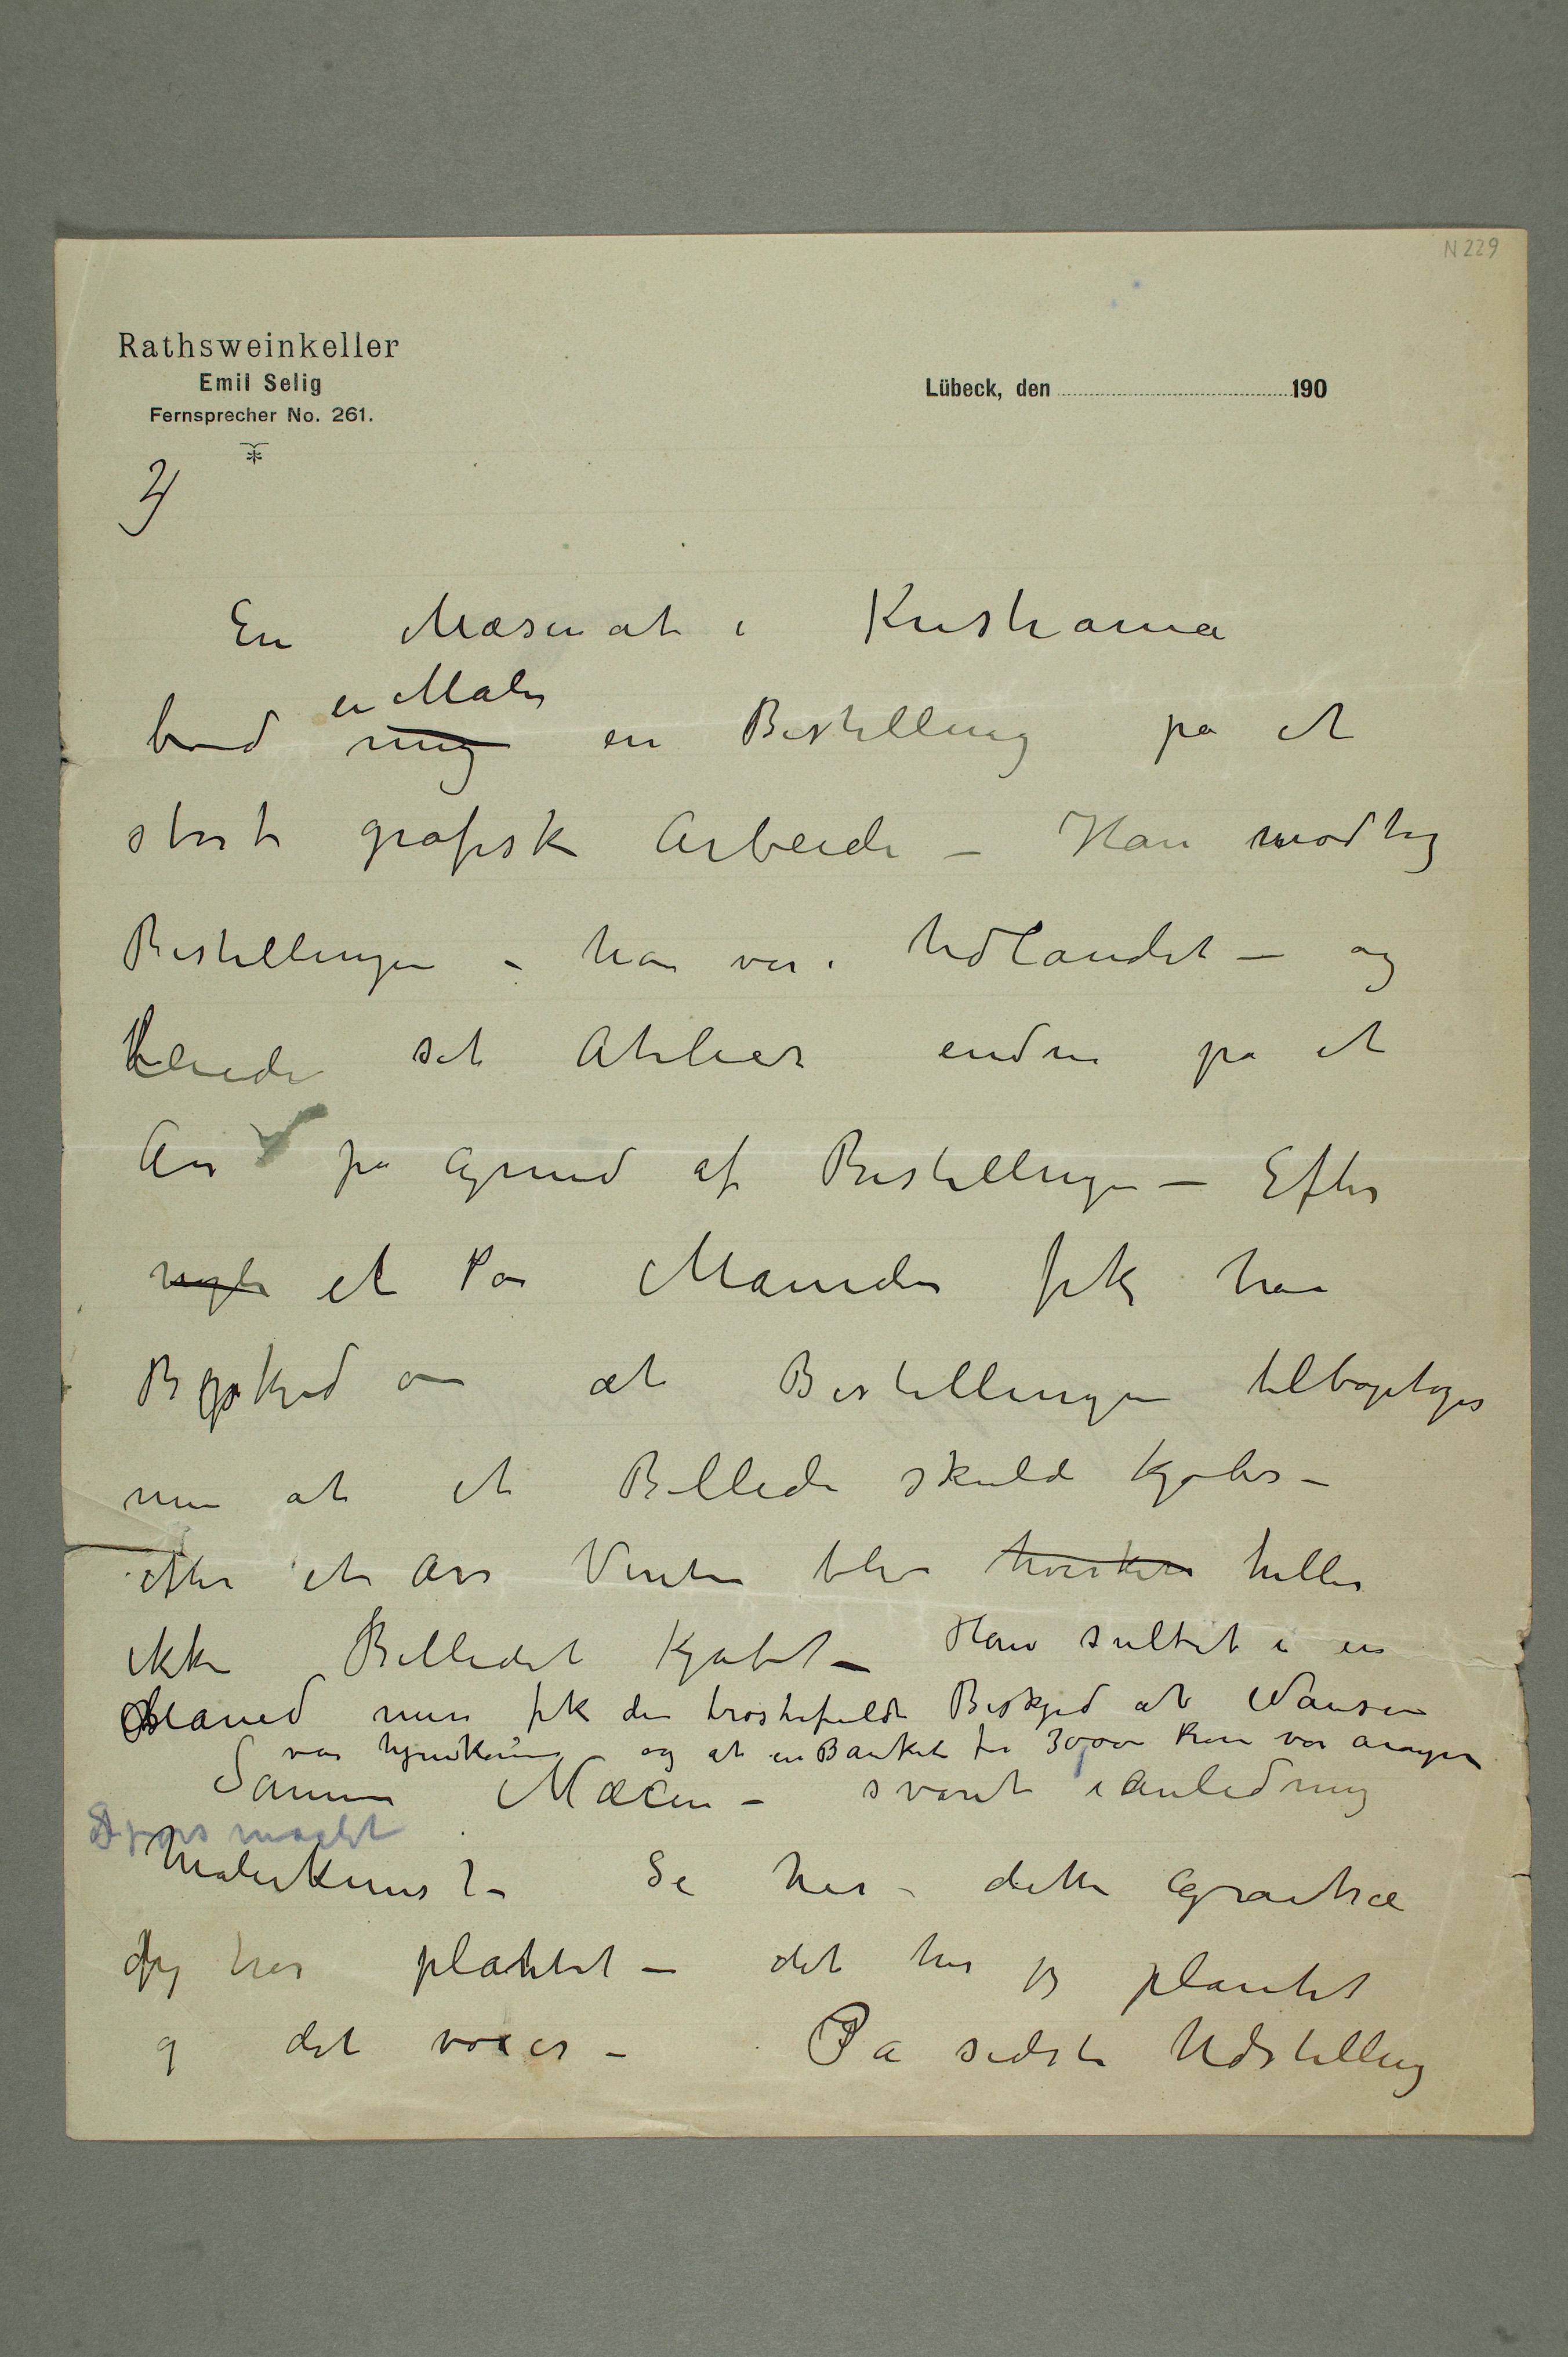 N 229
Rathsweinkeller
Emil Selig
Fernsprecher No. 261.
Lübeck, den 190
En Mæsenat i Kristiania
en Maler
bød mig en Bestilling på et
stort grafisk Arbeide – Han modtog
Bestillingen – han var i Udlandet – og
leiede sit Atelier endnu på et
År på Grund af Bestillingen – Efter
nogle et Par Måneder fik han
Beskjed om at Bestillingen tilbagetoges
men at et Billede skulde kjøbes –
efter et Års Venten blev hverken heller
ikke Billedet kjøbt – Han sultet i en
Måned men fik den trøstefulde Beskjed at Nansen
var hjemkommen – og at en Banket for 30000 Kron var arangeret
Samme Mæcen – svaret i Anledning
Malerkunst – Se her – dette Grantræ
jeg har plantet – det har jeg plantet
og det voxer – På sidste Udstilling